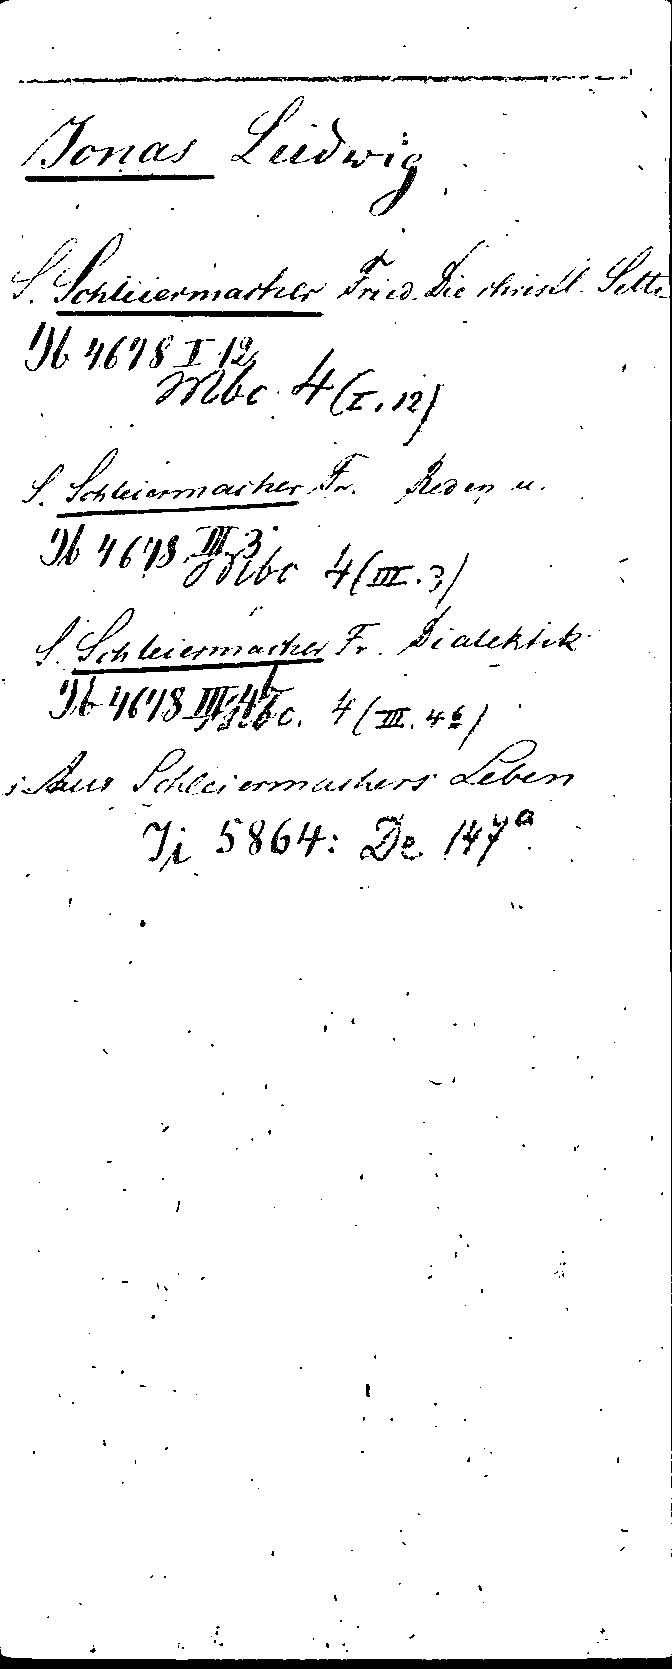 Jonas Ludwig
S. Schleiermacher Fried. Die christl. Sitte
Ib 4678 I 12
Mbc 4 (I. 12)
S. Schleiermacher Fr. Reden u.
Ib 4678 III 3
Mbc 4 (III. 3)
S. Schleiermacher Fr. Dialektik
Ib 4678 III 4b
Mbc. 4 (III. 4b)
s. Aus Schleiermachers Leben
Ji 5864: De 147a